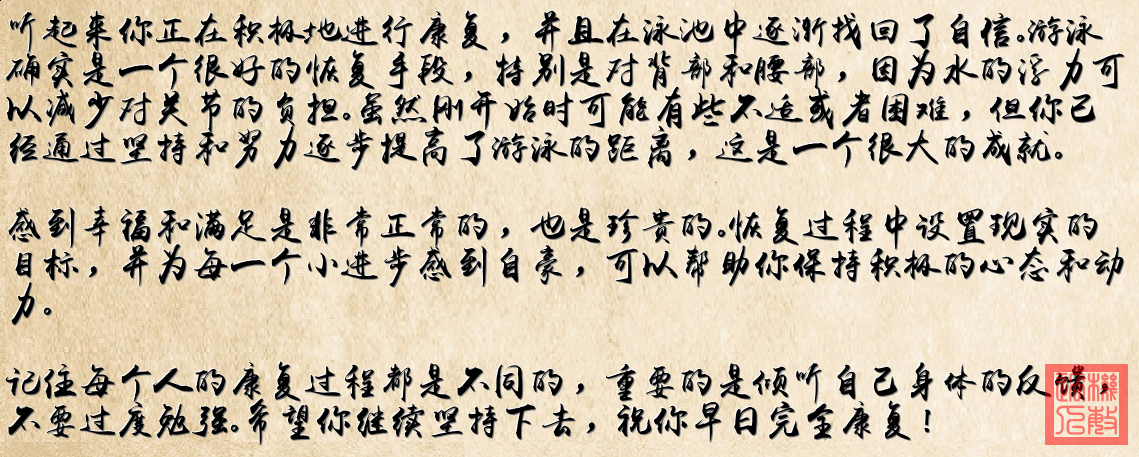 听起来你正在积极地进行康复，并且在泳池中逐渐找回了自信。游泳
确实是一个很好的恢复手段，特别是对背部和腰部，因为水的浮力可
以减少对关节的负担。虽然刚开始时可能有些不适或者困难，但你已
经通过坚持和努力逐步提高了游泳的距离，这是一个很大的成就。
感到幸福和满足是非常正常的，也是珍贵的。恢复过程中设置现实的
目标，并为每一个小进步感到自豪，可以帮助你保持积极的心态和动
力。
记住每个人的康复过程都是不同的，重要的是倾听自己身体的反馈，
不要过度勉强。希望你继续坚持下去，祝你早日完全康复！